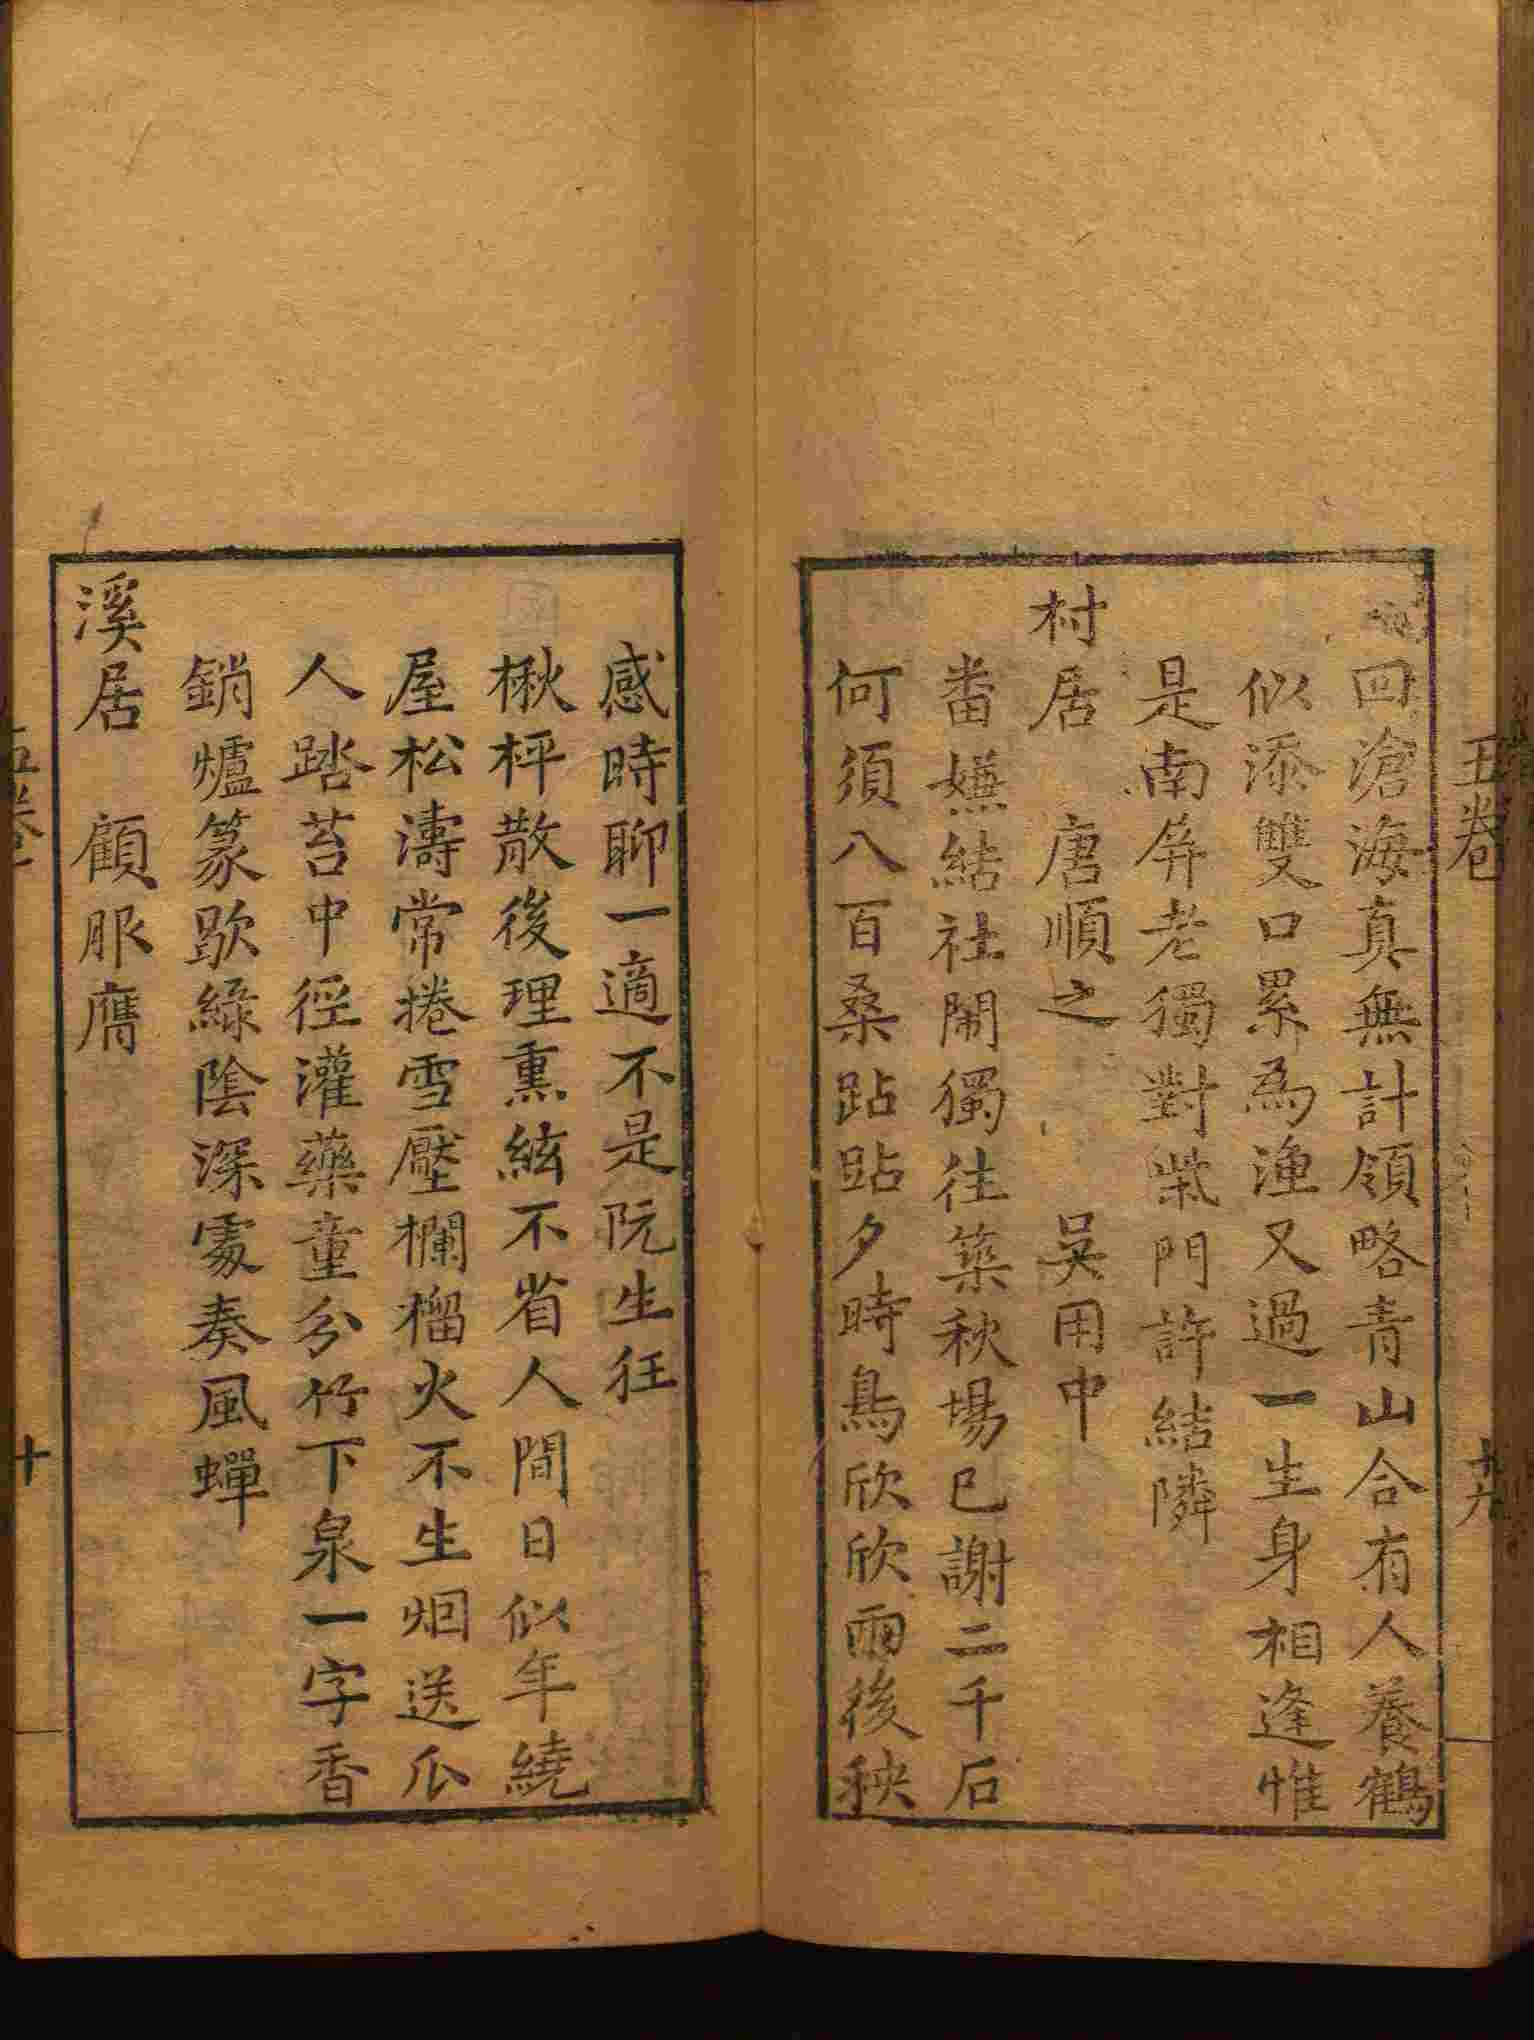 五卷
十六
回滄海真無計領略青山合有人養鶴
似添雙口累為漁又過一生身相逢惟
是南屏老獨對柴門許結隣
村居　唐順之　吳用中
畨嫵結社閙獨徃築秋場已謝二千石
何須八百桑跕跕夕時鳥欣欣雨後秧
感時聊一適不是阮生狂
楸枰散後理熏絃不省人間日似年繞
屋松濤常捲雪壓欄榴火不生烟送瓜
人踏苔中徑灌藥童分竹下泉一字香
銷爐篆歇綠陰深處奏風蟬
溪居　顧服膺
五卷
十